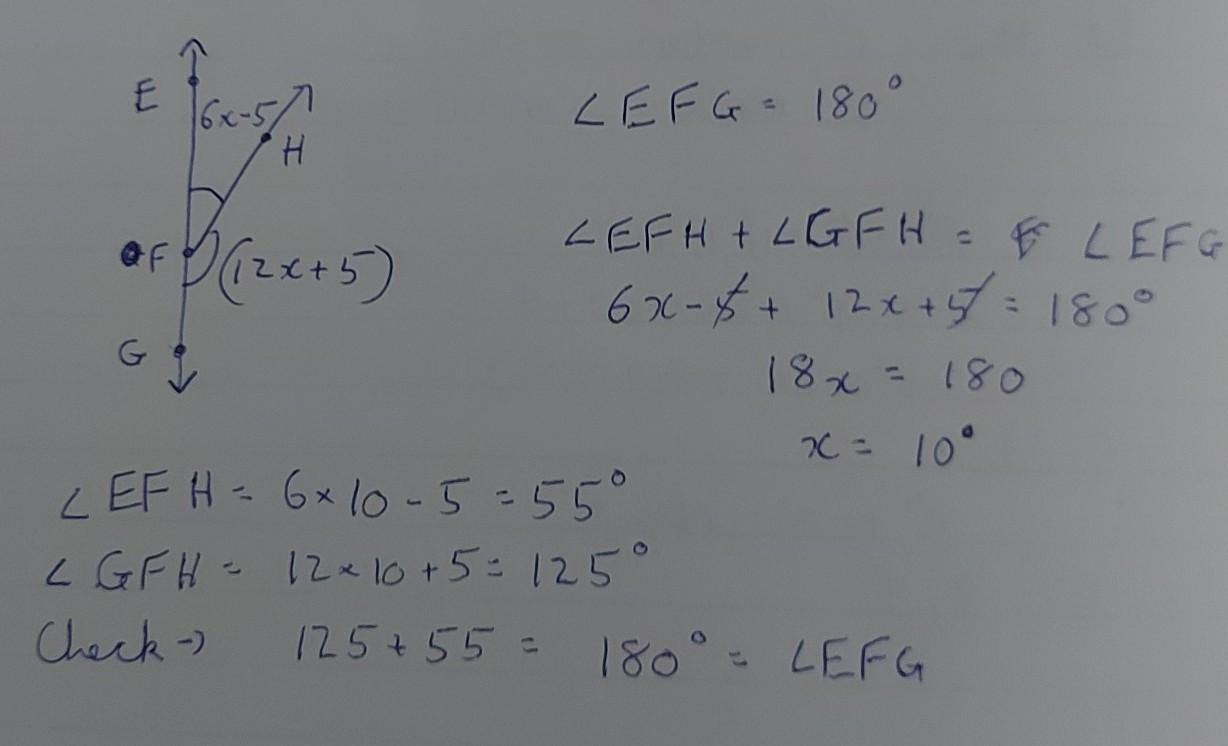 E
6x-5
H
F
(12x+5)
G
∠EFG = 180°
∠EFH + ∠GFH = ∠EFG
6x-5 + 12x+5 = 180°
18x = 180
x = 10°
∠EFH = 6×10-5 = 55°
∠GFH = 12×10+5 = 125°
Check → 125+55 = 180° = ∠EFG